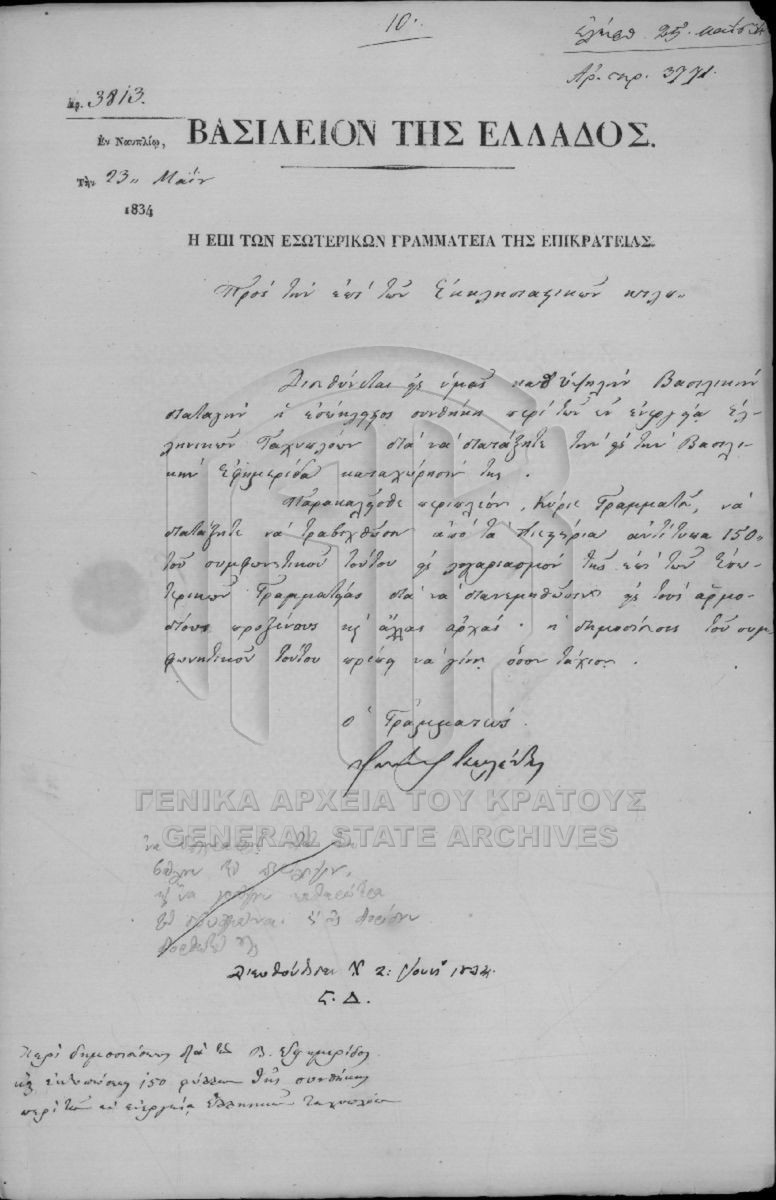 10.
ἐλήφθ 25 Μαΐου 34
Ἀρ. πρ. 3771.
Ἀρ. 3813.
Ἐν Ναυπλίῳ,
ΒΑΣΙΛΕΙΟΝ ΤΗΣ ΕΛΛΑΔΟΣ.
Τὴν 23 Μαΐου
1834
Η ΕΠΙ ΤΩΝ ΕΣΩΤΕΡΙΚΩΝ ΓΡΑΜΜΑΤΕΙΑ ΤΗΣ ΕΠΙΚΡΑΤΕΙΑΣ.
Πρὸς τὴν ἐπὶ τῶν Ἐκκλησιαστικῶν κτλ.
Διευθύνεται εἰς ὑμᾶς καθ' ὑψηλὴν Βασιλικὴν
διαταγὴν ἡ ἐσώκλειστος συνθήκη περὶ τῶν ἐν ἐνεργείᾳ Ἑλ-
ληνικῶν Ταχυπλόων διὰ νὰ διατάξητε τὴν εἰς τὴν Βασιλι-
κὴν Ἐφημερίδα καταχώρησίν της.
Παρακαλεῖσθε περιπλέον, Κύριε Γραμματεῦ, νὰ
διατάξητε νὰ τραβηχθῶσιν ἀπὸ τὰ πιεστήρια ἀντίτυπα 150
τοῦ συμφωνητικοῦ τούτου εἰς λογαριασμὸν τῆς ἐπὶ τῶν Ἐσω-
τερικῶν Γραμματείας διὰ νὰ διανεμηθῶσιν εἰς τοὺς ἁρμο-
δίους προξένους καὶ ἄλλας ἀρχάς. ἡ δημοσίευσις τοῦ συμ-
φωνητικοῦ τούτου πρέπει νὰ γίνῃ ὅσον τάχιστα.
Ὁ Γραμματεύς.
Κωλέττης
ΓΕΝΙΚΑ ΑΡΧΕΙΑ ΤΟΥ ΚΡΑΤΟΥΣ
GENERAL STATE ARCHIVES
Διευθύνθη 2: Ἰουν 1834.
Γ. Δ.
Περὶ δημοσιεύσεως διὰ τῆς Β. Ἐφημερίδος
καὶ ἐκτυπώσεως 150 φύλλων τῆς συνθήκης
περὶ τῶν ἐν ἐνεργείᾳ ἑλληνικῶν ταχυπλόων